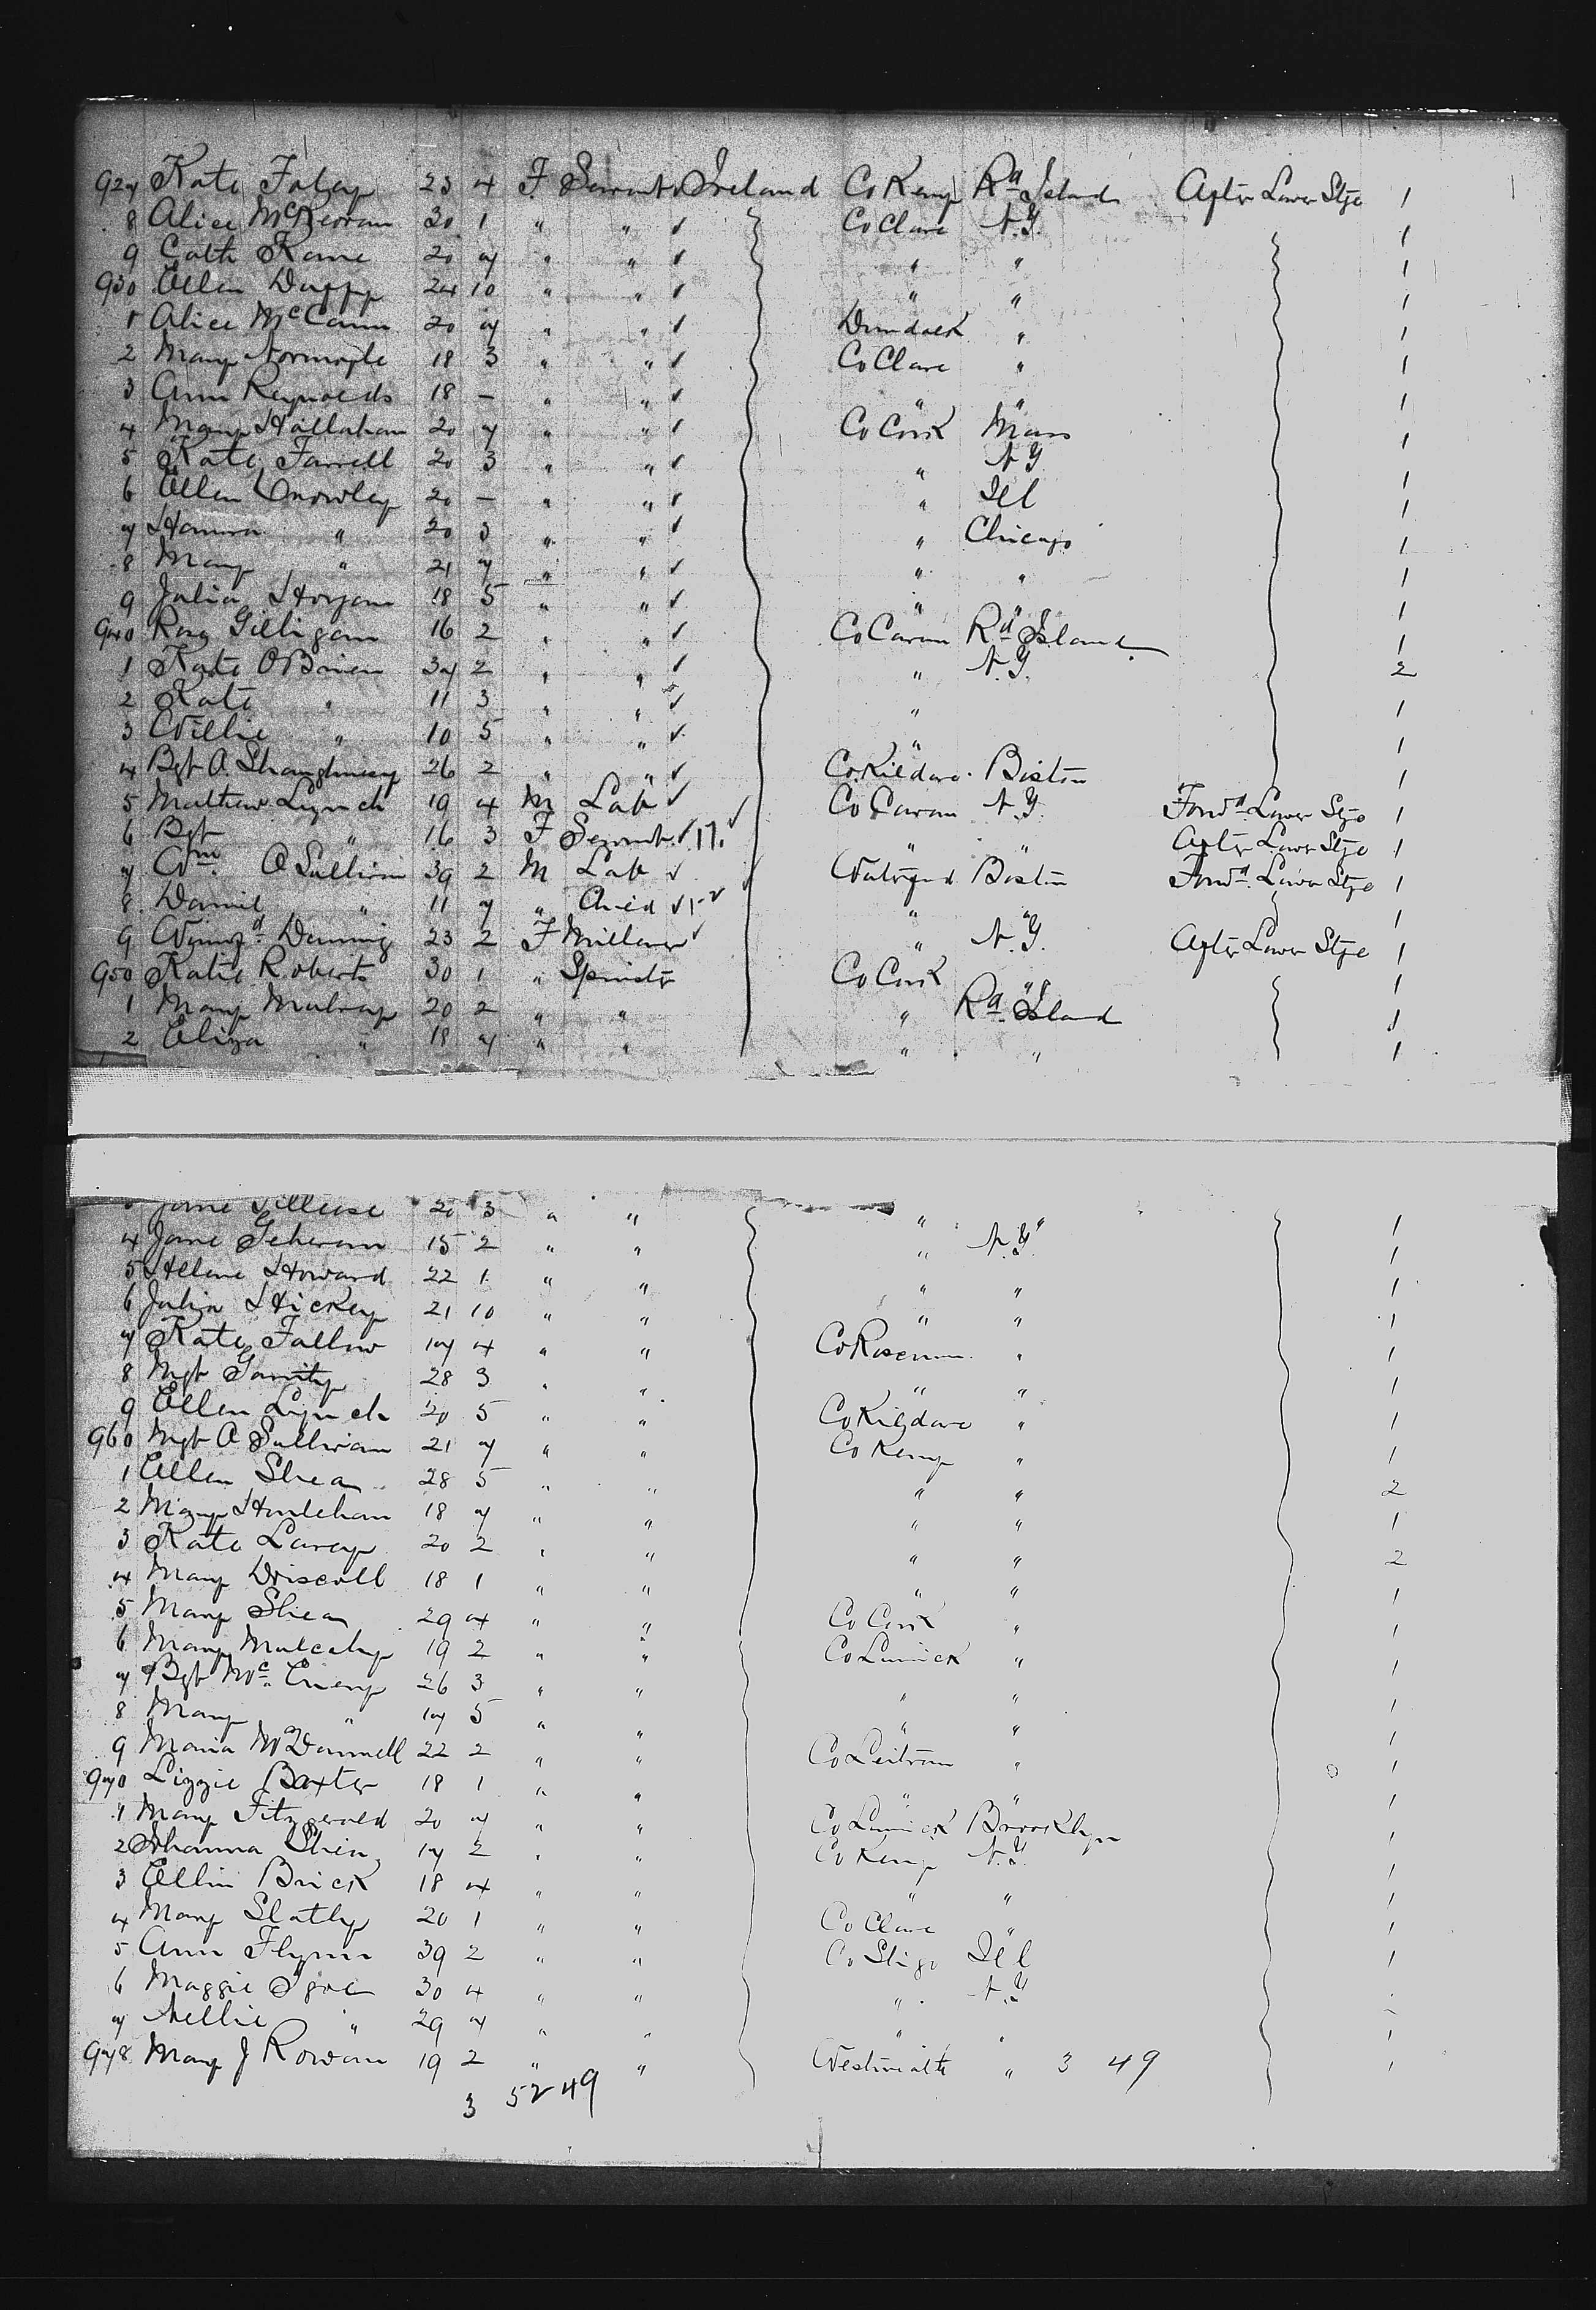 927 Kate Foley 23 4 F Servant Ireland Co Kerry Rd Island After Lower Stge 1
8 Alice McKerran 30 1 " " Co Clare N.Y. 1
9 Cath Kane 20 7 " " " " 1
930 Ellen Duffy 24 10 " " " " 1
1 Alice McCann 20 7 " " Dundalk " 1
2 Mary Normoyle 18 3 " " Co Clare " 1
3 Ann Reynolds 18 - " " " " 1
4 Mary Hallahan 20 7 " " Co Cork Mass 1
5 Kate Farrell 20 3 " " " N.Y. 1
6 Ellen Crowley 20 - " " " Ill 1
7 Hanora " 20 3 " " " Chicago 1
8 Mary " 21 7 " " " " 1
9 Julia Horgan 18 5 " " " " 1
940 Rosa Gilligan 16 2 " " Co Cavan Rd Island 1
1 Kate OBrien 37 2 " " " N.Y. 2
2 Kate " 11 3 " " " 1
3 Willie " 10 5 " " " 1
4 Bgt O. Shaughnessy 26 2 " " Co. Kildare. Boston 1
5 Mathew Lynch 19 4 M Lab Co Cavan N.Y. Forwd Lower Stge 1
6 Bgt " 16 3 F Servant 17. " " After Lower Stge 1
7 Wm. O Sullivan 39 2 M Lab Waterford Boston Forwd. Lower Stge 1
8. Daniel " 11 7 " Child " " 1
9 Winnifd. Denning 23 2 F Milliner " N.Y. After Lower Stge 1
950 Katie Roberts 30 1 " Spinster Co Cork " 1
1 Mary Mulray 20 2 " " " Rd. Island 1
2 Eliza " 18 7 " " " " 1
Jane 20 3 " " " " 1
4 Jane Geheran 15 2 " " " N.Y. 1
5 Helene Howard 22 1 " " " " 1
6 Julia Hickey 21 10 " " " " 1
7 Kate Fallow 17 4 " " Co Roscmn " 1
8 Mgt Garrity 28 3 " " " " 1
9 Ellen Lynch 20 5 " " Co Kildare " 1
960 Mgt O Sullivan 21 7 " " Co Kerry " 1
1 Ellen Shea 28 5 " " " " 2
2 Mary Houlehan 18 7 " " " " 1
3 Kate Carey 20 2 " " " " 2
4 Mary Driscoll 18 1 " " " " 1
5 Mary Shea 29 4 " " Co Cork " 1
6 Mary Mulcahy 19 2 " " Co Limrick " 1
7 Bgt Mc. Enery 26 3 " " " " 1
8 Mary " 17 5 " " " " 1
9 Maria McDonnell 22 2 " " Co Leitrim " 1
970 Lizzie Baxter 18 1 " " " " 1
1 Mary Fitzgerald 20 7 " " Co Limrick Brooklyn 1
2 Johanna Shea 17 2 " " Co Kerry N.Y. 1
3 Ellen Brick 18 4 " " " " 1
4 Mary Slatly 20 1 " " Co Clare " 1
5 Ann Flynn 39 2 " " Co Sligo Ill 1
6 Maggie Igoe 30 4 " " " N.Y.
7 Nellie " 29 7 " " " " 1
978 Mary J Rowan 19 2 " " Westmeath " 3 49 1
3 52 49